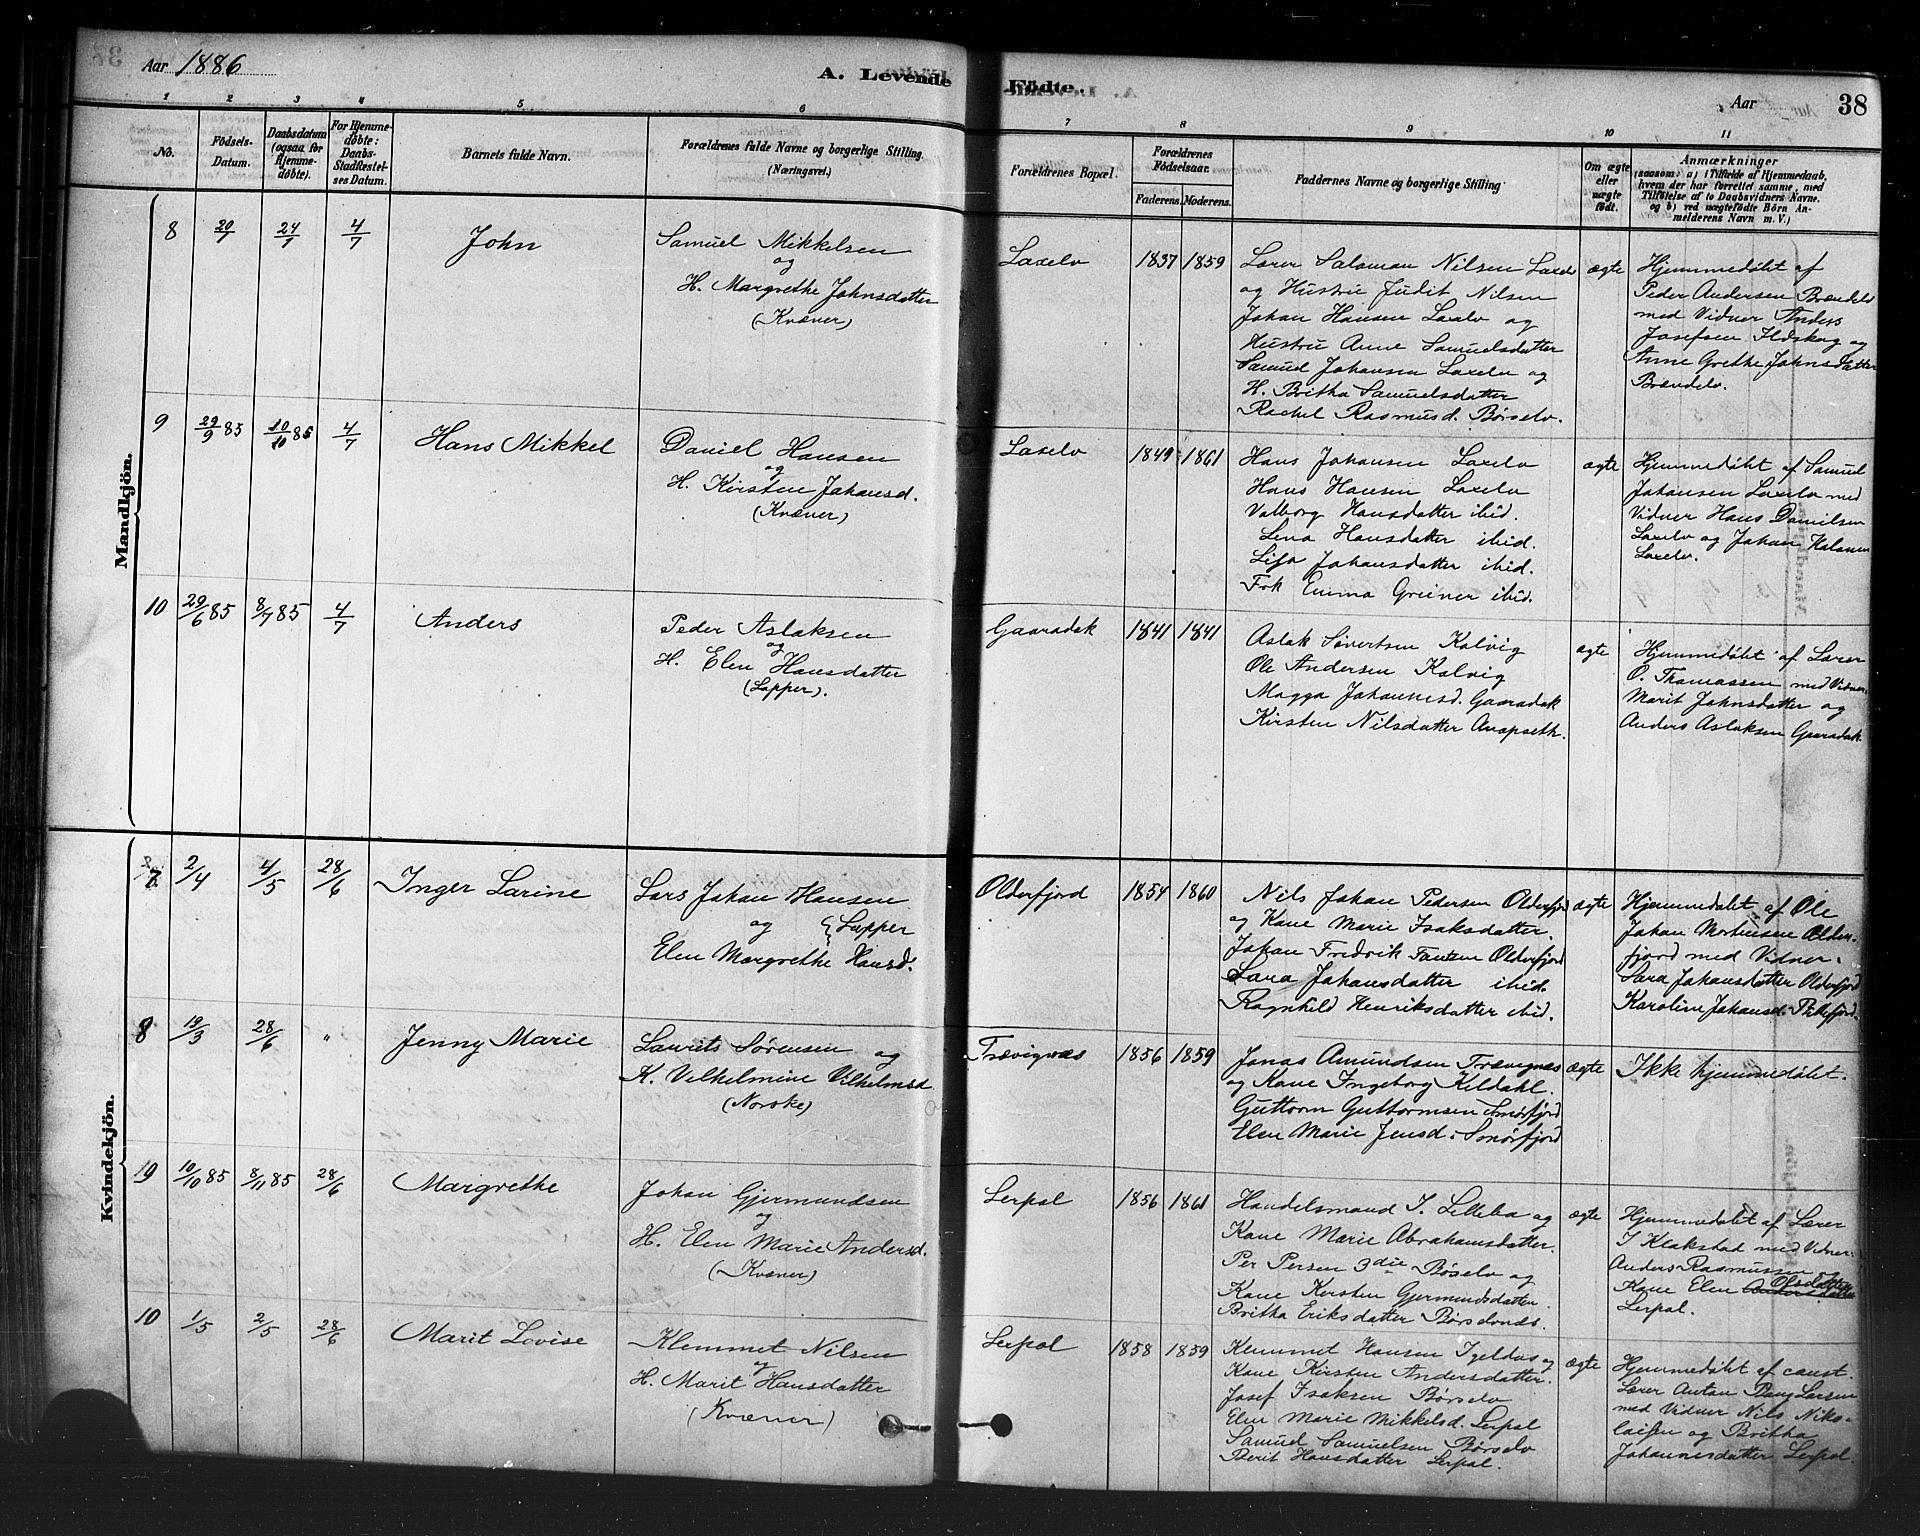 Aar 1886
A. Levende Födte.
Aar
38
1 2 3 4 5 6 7 8 9 10 11
No.
Födsels-Datum.
Daabsdatum (ogsaa för Hjemmedöbte).
For Hjemmedöbte: Daabs-Stadfæstelses Datum.
Barnets fulde Navn.
Forældrenes fulde Navne og borgerlige Stilling. (Næringsvei.)
Forældrenes Bopæl.
Forældrenes Födselsaar.
Faderens. Moderens.
Faddernes Navne og borgerlige Stilling
Om ægte eller uægte födt.
Anmærkninger
(saasom: a) i Tilfælde af Hjemmedaab,
hvem der har forrettet samme, med
Tilföielse af to Daabsvidners Navne.
og b) ved uægtefödte Börn An-
melderens Navn m. V.)
Mandkjön.
8 20/1 24/1 4/7 John
Samuel Mikkelsen
og
H. Margrethe Johnsdatter
(Kvæner)
Laxelv 1837 1859
Lærer Salomon Nilsen Laxelv
og Hustru Judit Nilsen
Johan Hansen Laxelv og
Hustru Anne Samuelsdatter
Samuel Johansen Laxelv og
H. Britha Samuelsdatter
Rachel Rasmusd. Børselv.
ægte
Hjemmedøbt af
Peder Andersen Brændelv
med Vidner Anders
Josefsen Ildskog og
Anne Grethe Johnsdatter
Brændelv.
9 29/9 85 10/10 85 4/7 Hans Mikkel
Daniel Hansen
og
H. Kirsten Johansd.
(Kvæner)
Laxelv 1849 1861
Hans Johansen Laxelv
Hans Hansen Laxelv
Valborg Hansdatter ibid.
Lena Hansdatter ibid.
Lisa Johansdatter ibid.
Frk Emma Greiner ibid.
ægte
Hjemmedøbt af Samuel
Johansen Laxelv med
Vidner Hans Danielsen
Laxelv og Johan
Laxelv.
10 29/6 85 8/7 85 4/7 Anders
Peder Aslaksen
og
H. Elen Hansdatter
(Lapper).
Gaaradak 1841 1841
Aslak Sivertsen Kolvig
Ole Andersen Kolvig
Magga Johannesd. Gaaradak
Kirsten Nilsdatter Avapseth.
ægte
Hjemmedøbt af Lærer
O. Thomassen med Vidner
Marit Johnsdatter og
Anders Aslaksen Gaaradak.
Kvindekjön.
7 2/4 4/5 28/6 Inger Larine
Lars Johan Hansen
og } Lapper
Elen Margrethe Hansd.
Olderfjord 1854 1860
Nils Johan Pedersen Olderfjord
og Kone Marie Isaksdatter.
Johan Fredrik Fantzen Olderfjord
Sara Johansdatter ibid.
Ragnhild Henriksdatter ibid.
ægte
Hjemmedøbt af Ole
Johan Mortensen Older-
fjord med Vidner
Sara Johansdatter Olderfjord
Karoline Johansd.
8 19/3 28/6 " Jenny Marie
Laurits Sørensen og
K. Vilhelmine Vilhelmsd
(Norske)
Trævignæs 1856 1859
Jonas Amundsen Trævignæs
og Kone Ingeborg Kildahl.
Guttorm Guttormsen Smørfjord
Elen Marie Jensd. Smørfjord
ægte
Ikke hjemmedøbt.
19 10/10 85 8/11 85 28/6 Margrethe
Johan Gjermundsen
og
H. Elen Marie Andersd.
(Kvæner)
Lerpol 1856 1861
Handelsmand I. Lilleba og
Kone Marie Abrahamsdatter.
Per Persen 3die Børselv og
Kone Kersten Gjermundsdatter.
Britha Eriksdatter
ægte
Hjemmedøbt af Lærer
I Klakstad med Vidner
Anders Rasmussen og
Kone Elen Olsdatter
Lerpol.
10 1/5 2/5 28/6 Marit Lovise
Klemmet Nilsen
og
H. Marit Hansdatter
(Kvæner)
Lerpol 1858 1859
Klemmet Hansen Igeldas og
Kone Kirsten Andersdatter.
Josef Isaksen Børselv
Elen Marie Mikkelsd. Lerpol
Samuel Samuelsen Børselv
Berit Hansdatter Lerpol.
ægte
Hjemmedøbt af const.
Lærer Anton Bang Larsen
med Vidner Nils Niko-
laisen og Britha
Johannesdatter Lerpol.